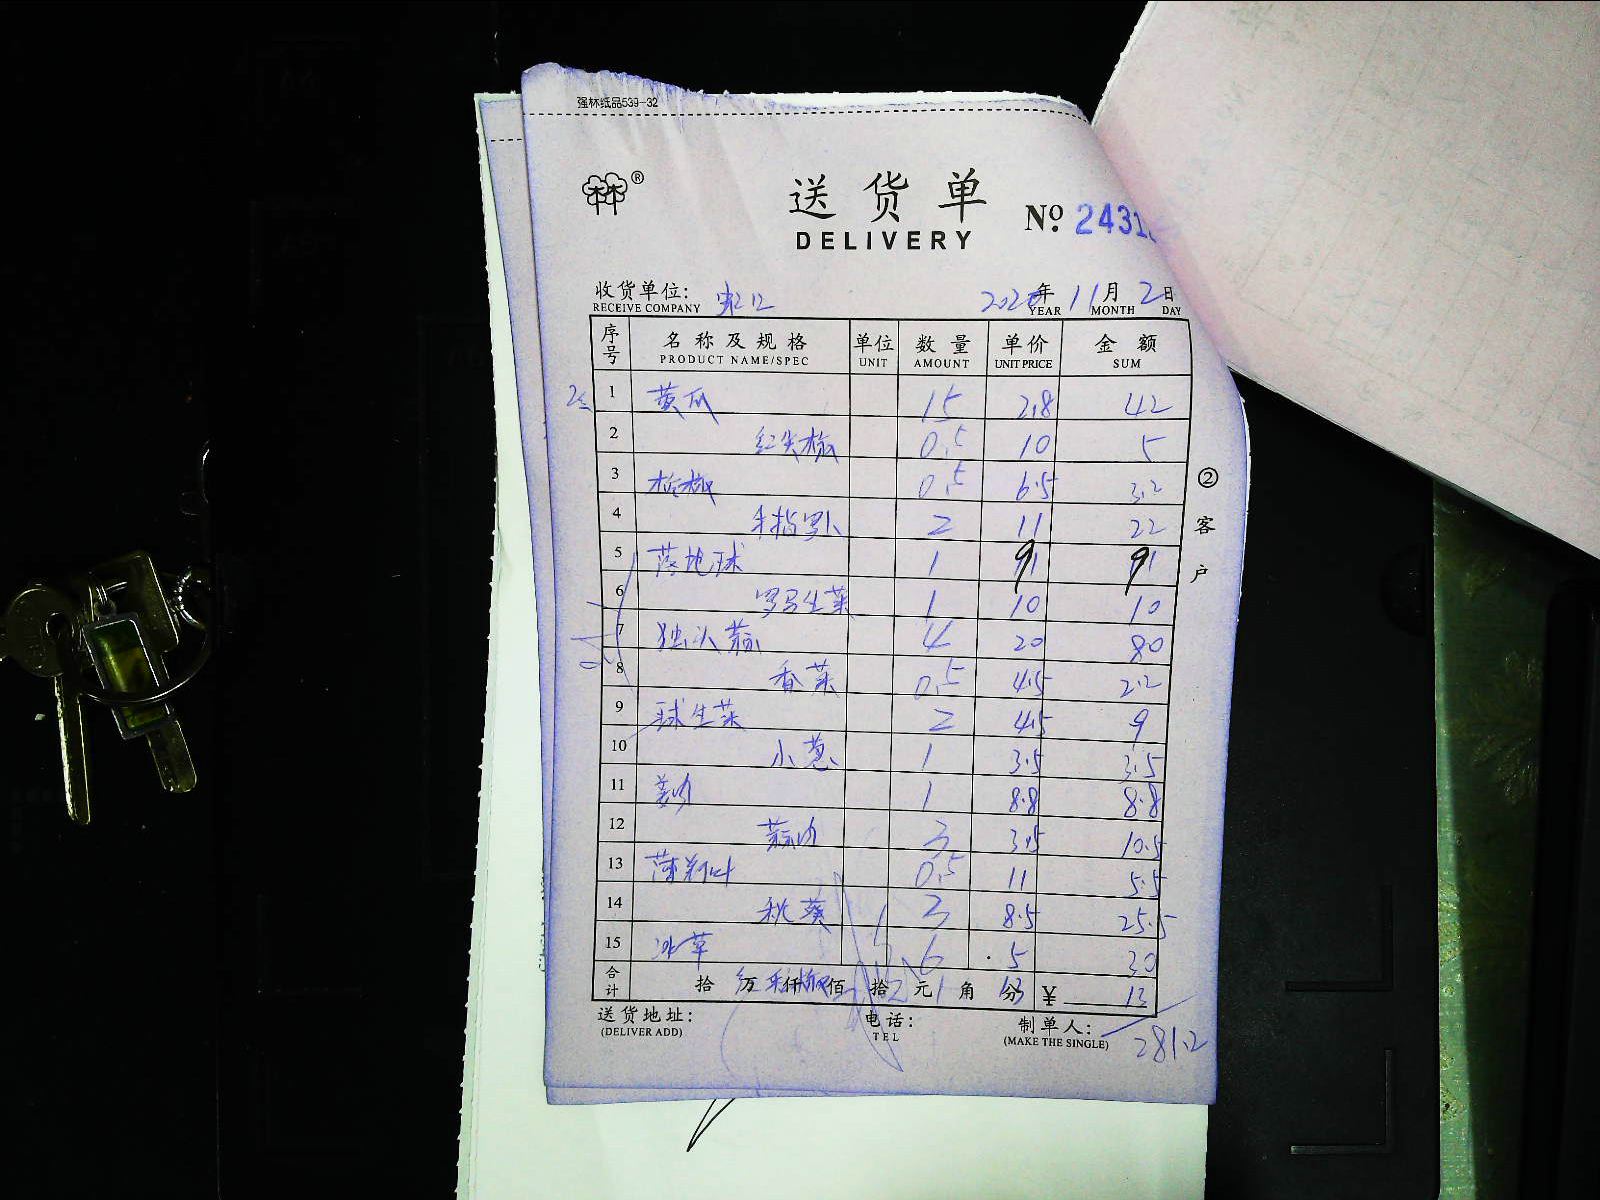 强林纸品539-32
®
送货单
DELIVERY
No. 2431
收货单位:
RECEIVE COMPANY
202 年 11 月 2 日
YEAR MONTH DAY
序号 名称及规格 单位 数量 单价 金额
PRODUCT NAME/SPEC UNIT AMOUNT UNIT PRICE SUM
1 黄瓜 15 2.8 42
2 红尖椒 0.5 10 5
3 0.5 6.5 3.2
4 手指罗卜 2 11 22
5 落地球 1 9 9
6 罗马生菜 1 10 10
7 独头蒜 4 20 80
8 香菜 0.5 4.5 2.2
9 球生菜 2 4.5 9
10 小葱 1 3.5 3.5
11 1 8.8 8.8
12 3 3.5 10.5
13 薄荷叶 0.5 11 5.5
14 秋葵 3 8.5 25.5
15 冰草 6 5 30
合计 拾 万 仟 佰 拾 元 角 分 ¥ 13
②客户
送货地址:
(DELIVER ADD)
电话:
TEL
制单人:
(MAKE THE SINGLE)
281.2